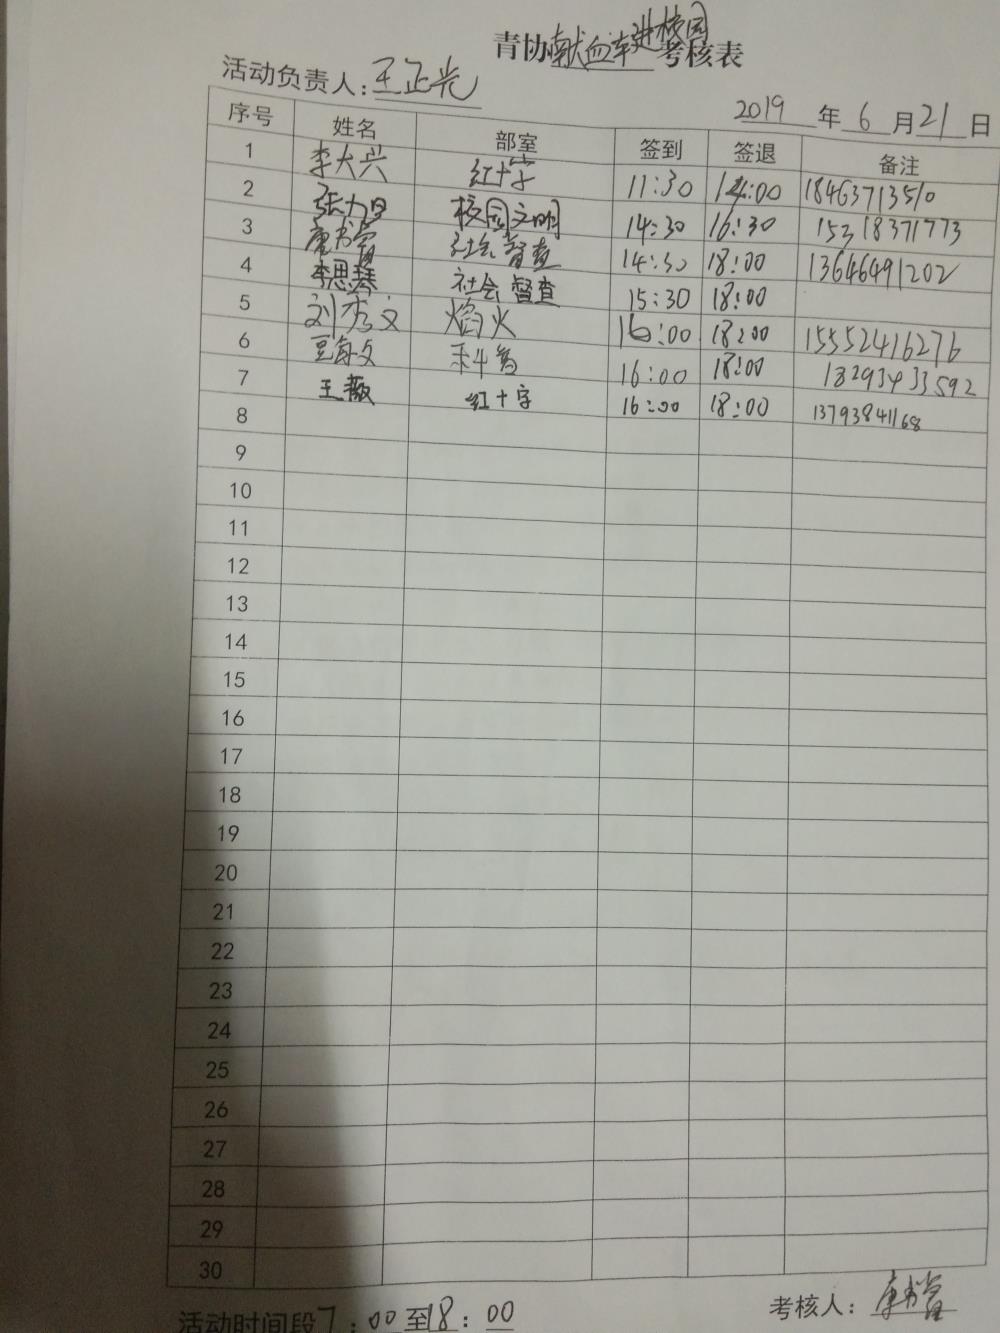 青协献血车进校园考核表
活动负责人：王正光
2019 年 6 月 21 日
序号 姓名 部室 签到 签退 备注
1 李大兴 红十字 11:30 14:00 18463713510
2 校园文明 14:30 16:30 15318371773
3 社会督查 14:30 18:00 13646491202
4 李思琴 社会督查 15:30 18:00
5 刘秀文 焰火 16:00 18:00 15552416276
6 16:00 18:00 18293433592
7 王薇 红十字 16:00 18:00 13793841168
8
9
10
11
12
13
14
15
16
17
18
19
20
21
22
23
24
25
26
27
28
29
30
活动时间段7:00至18:00 考核人：